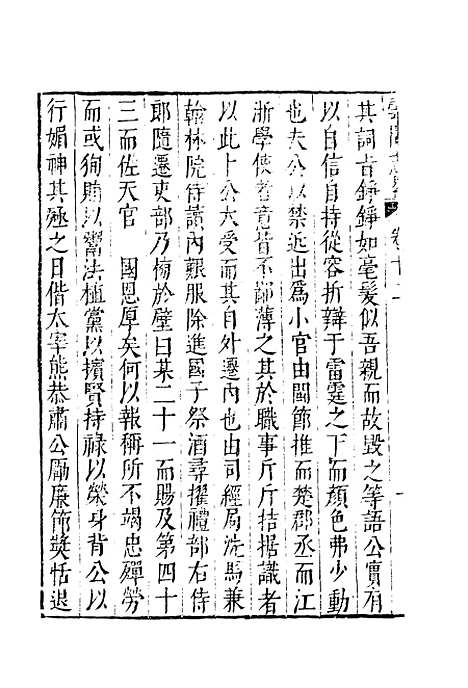 卷十二
其詞古錚錚如毫髮似吾親而故毀之等語公實有
以自信自持從容折辯于雷霆之下而顏色弗少動
也夫公以禁近出爲小官由閩節推而楚郡丞而江
浙學俠者意皆不鄙薄之其於職事斤斤拮据識者
以此卜公大受而其自外遷内也由司經局洗馬兼
翰林院侍讀内艱服除進國子祭酒尋擢禮部右侍
郎隨遷吏部乃悔於壁曰某二十一而賜及第四十
三而佐天官 國恩厚矣何以報稱所不竭忠殫勞
而或狥賄以鬻法植黨以擯賢持祿以榮身背公以
行媚神其殛之日偕太宰熊恭肅公勵廉節獎恬退